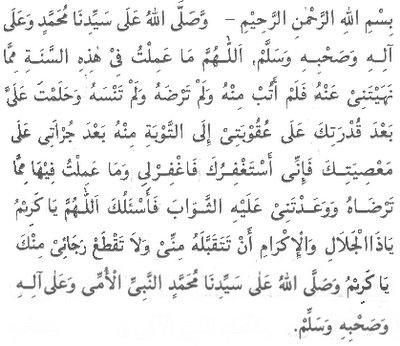 بِسْمِ اللهِ الرَّحْمٰنِ الرَّحِيْمِ – وَّصَلَّى اللهُ عَلَى سَيِّدِنَا مُحَمَّدٍ وَعَلَى
آلِـهِ وَصَحْبِـهِ وَسَلَّمْ. اَللّٰـهُمَّ مَا عَمِلْتُ فِيْ هٰذِهِ السَّنَـةِ مِمَّا
نَهَيْتَنِيْ عَنْهُ فَلَمْ أَتُبْ مِنْهُ وَلَمْ تَرْضَهُ وَلَمْ تَنْسَهُ وَحَلَمْتَ عَلَيَّ
بَعْدَ قُدْرَتِكَ عَلَى عُقُوْبَتِيْ إِلَى التَّوْبَةِ مِنْهُ بَعْدَ جُرْأَتِي عَلَى
مَعْصِيَتِـكَ فَإِنِّى أَسْتَغْفِرُكَ فَاغْفِرْلِى وَمَا عَمِلْتُ فِيْهَا مِمَّا
تَرْضَاهُ وَوَعَدْتَنِيْ عَلَيْهِ الثَّوَابَ فَأَسْئَلُكَ اَللّٰهُمَّ يَا كَرِيْمُ
يَاذَاالْجَلَالِ وَالْإِكْرَامِ أَنْ تَتَقَبَّلَهُ مِنِّيْ وَلَا تَقْطَعْ رَجَائِيْ مِنْكَ
يَا كَرِيْمُ وَصَلَّى اللهُ عَلَى سَيِّدِنَا مُحَمَّدٍ النَّبِيِّ الْأُمِّى وَعَلَى آلِـهِ
وَصَحْبِهِ وَسَلِّمْ.